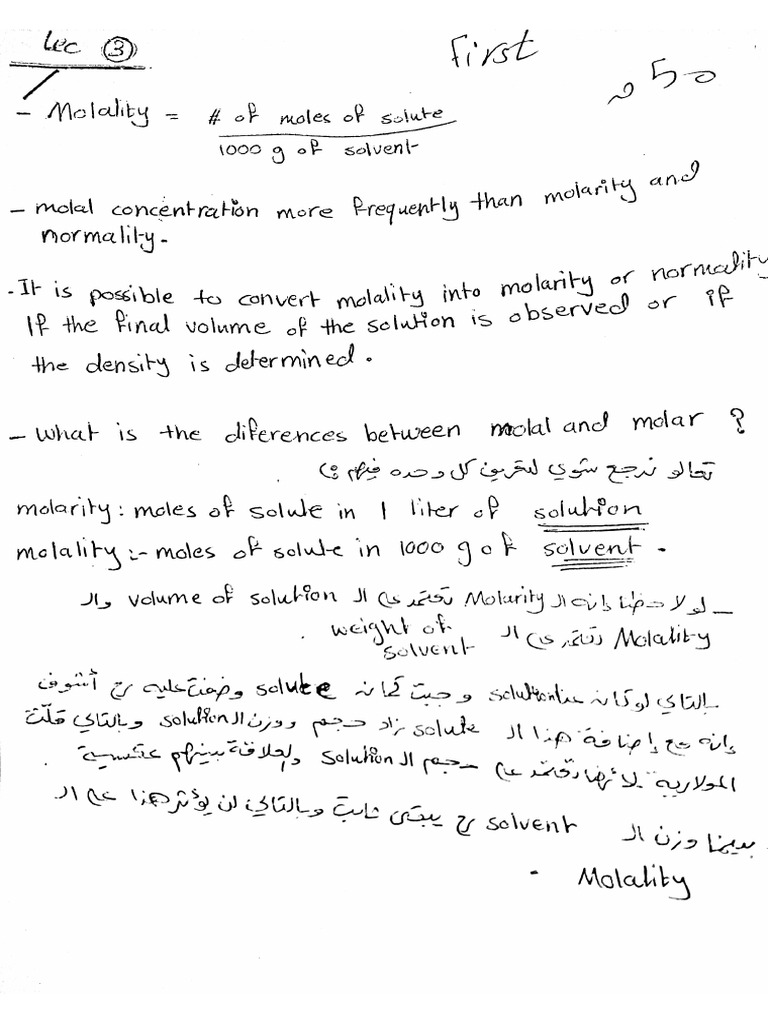 Lec ③
First
50
- Molality = # of moles of solute
1000 g of solvent
- molal concentration more frequently than molarity and
normality.
. It is possible to convert molality into molarity or normality
If the final volume of the solution is observed or if
the density is determined.
- What is the diferences between molal and molar ?
تعالو نرجع سوي لتعريف كل وحده فيهم :
molarity : moles of solute in 1 liter of solution
molality :- moles of solute in 1000 g of solvent .
_ لو لاحظنا إنه ال Molarity تعتمد على ال volume of solution وال
Molality تعتمد على ال weight of
solvent .
بالتالي لو كان عنا solution وجبت كمان solute وضفت عليه رح أشوف
إنه مع إضافة هذا ال solute زاد حجم ووزن ال solution وبالتالي قلّت
المولارية لأنها تعتمد على حجم ال solution والعلاقة بينهم عكسية .
بينما وزن ال solvent رح يبقى ثابت وبالتالي لن يؤثر هذا على ال
Molality .